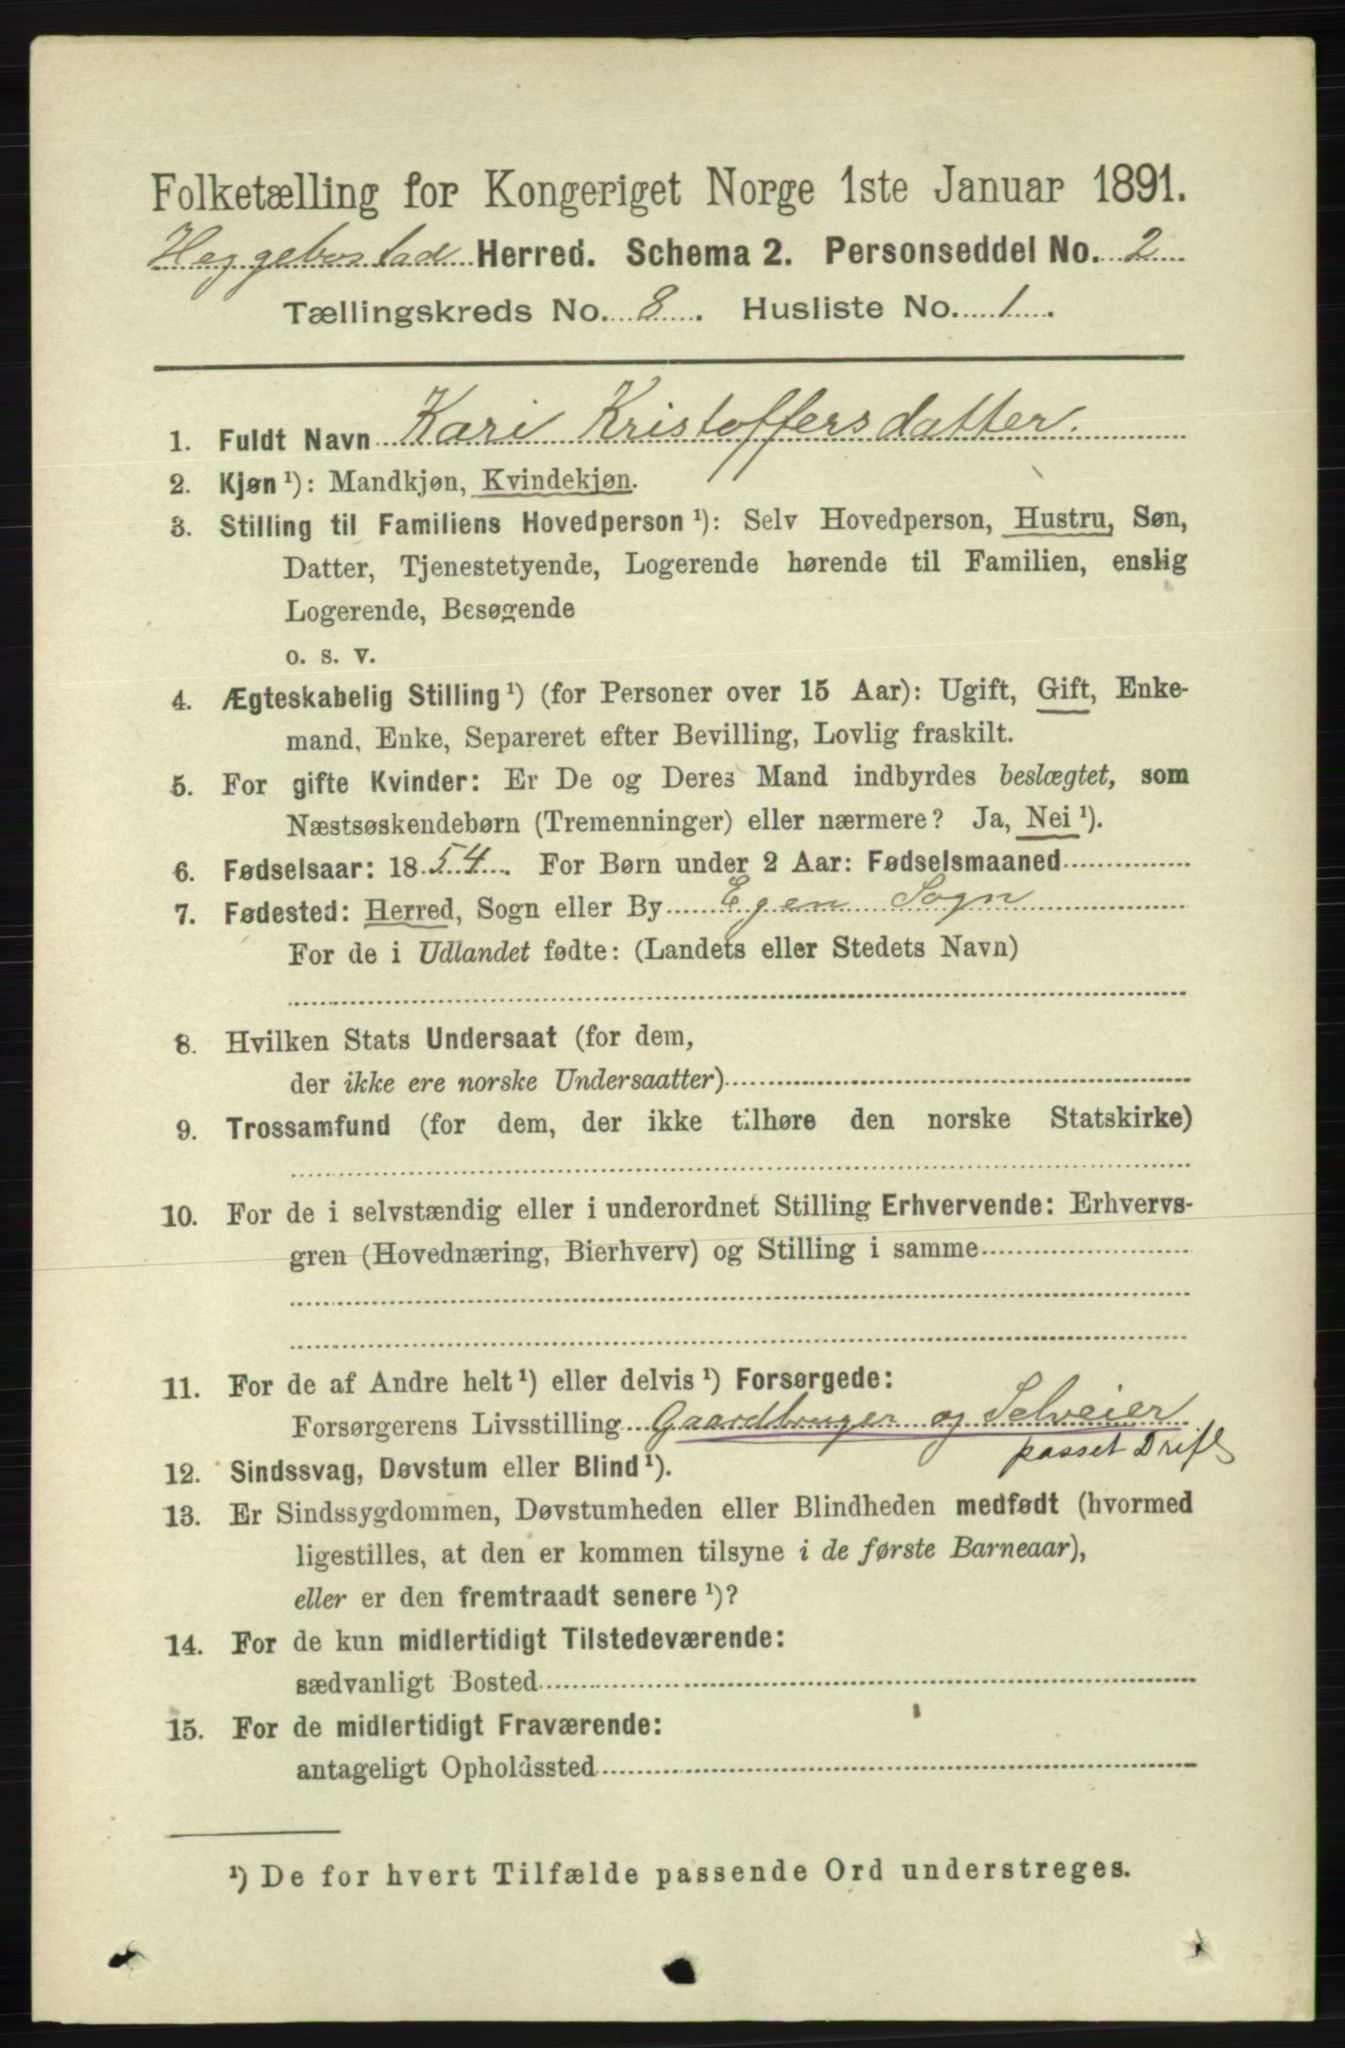 Folketælling for Kongeriget Norge 1ste Januar 1891.
Heggebostad Herred. Schema 2. Personseddel No. 2
Tællingskreds No. 8. Husliste No. 1.
1. Fuldt Navn Kari Kristoffersdatter.
2. Kjøn ¹): Mandkjøn, Kvindekjøn.
3. Stilling til Familiens Hovedperson ¹): Selv Hovedperson, Hustru, Søn,
Datter, Tjenestetyende, Logerende hørende til Familien, enslig
Logerende, Besøgende
o. s. v.
4. Ægteskabelig Stilling ¹) (for Personer over 15 Aar): Ugift, Gift, Enke-
mand, Enke, Separeret efter Bevilling, Lovlig fraskilt.
5. For gifte Kvinder: Er De og Deres Mand indbyrdes beslægtet, som
Næstsøskendebørn (Tremenninger) eller nærmere? Ja, Nei ¹).
6. Fødselsaar: 1854. For Børn under 2 Aar: Fødselsmaaned
7. Fødested: Herred, Sogn eller By Egen Sogn
For de i Udlandet fødte: (Landets eller Stedets Navn)
8. Hvilken Stats Undersaat (for dem,
der ikke ere norske Undersaatter)
9. Trossamfund (for dem, der ikke tilhøre den norske Statskirke)
10. For de i selvstændig eller i underordnet Stilling Erhvervende: Erhvervs-
gren (Hovednæring, Bierhverv) og Stilling i samme
11. For de af Andre helt ¹) eller delvis ¹) Forsørgede:
Forsørgerens Livsstilling Gaardbruger og Selveier
passet Drift
12. Sindssvag, Døvstum eller Blind ¹).
13. Er Sindssygdommen, Døvstumheden eller Blindheden medfødt (hvormed
ligestilles, at den er kommen tilsyne i de første Barneaar),
eller er den fremtraadt senere ¹)?
14. For de kun midlertidigt Tilstedeværende:
sædvanligt Bosted
15. For de midlertidigt Fraværende:
antageligt Opholdssted
¹) De for hvert Tilfælde passende Ord understreges.